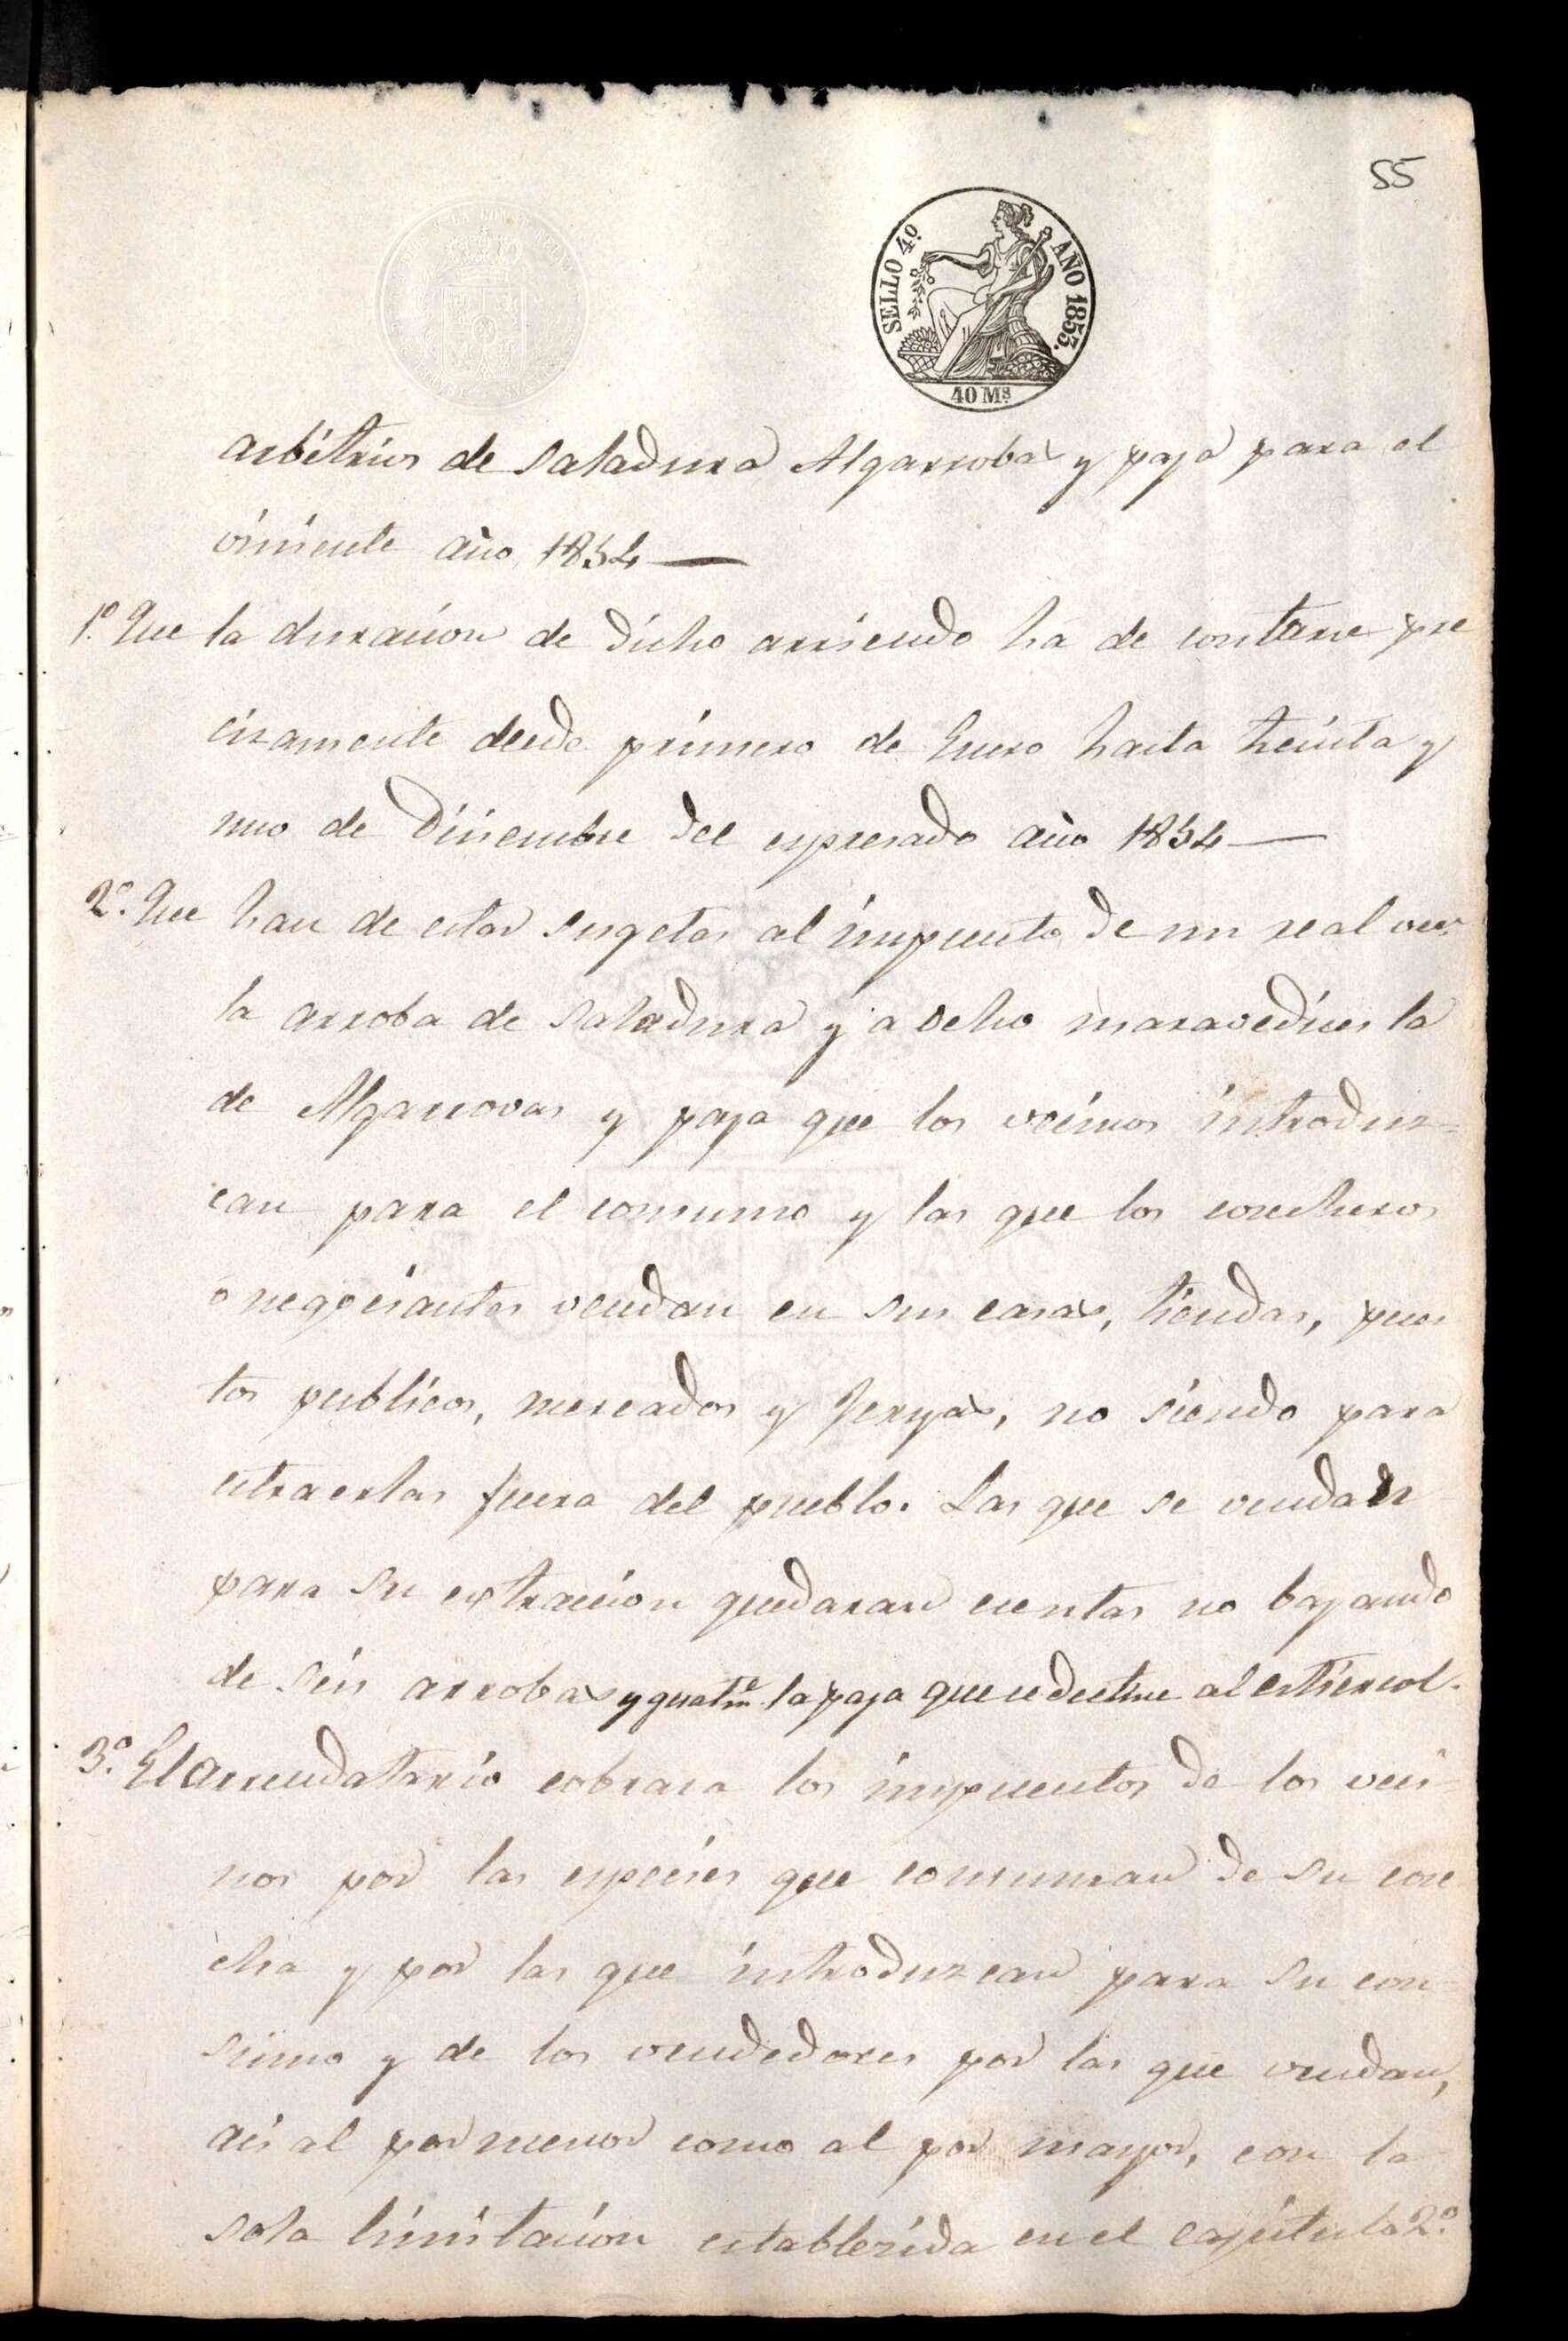 55
SELLO 4º
AÑO 1853.
40 Mˢ
arbitrios de saladura Algarrobas y paja para el
viniente año 1854 —
1º. Que la duracion de dicho arriendo ha de contarse pre
cisamente desde primero de Enero hasta treinta y
uno de Diciembre del espresado año 1854 —
2º. Que han de estar sugetas al impuesto de un real von
la arroba de saladura y a ocho maravedises la
de Algarrovas y paja que los vecinos introduz-
can para el consumo y las que los cosecheros
o negociantes vendan en sus casas, tiendas, pues
tos publicos, mercados y feryas, no siendo para
estraerlas fuera del pueblo. Las que se vendan
para su extraccion quedaran esentas no bajando
de seis arrobas y la paja que se destine al estiercol.
3º. El Arrendatario cobrara los impuestos de los veci
nos por las especies que consuman de su cose
cha y por las que introduzcan para su con-
sumo y de los vendedores por las que vendan,
asi al por menor como al por mayor, con la
sola limitacion establezida en el capitulo 2º